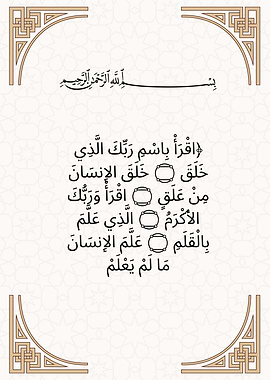 بِسْمِ اللَّهِ الرَّحْمَٰنِ الرَّحِيمِ
﴿اقْرَأْ بِاسْمِ رَبِّكَ الَّذِي
خَلَقَ ۝ خَلَقَ الإِنسَانَ
مِنْ عَلَقٍ ۝ اقْرَأْ وَرَبُّكَ
الأَكْرَمُ ۝ الَّذِي عَلَّمَ
بِالْقَلَمِ ۝ عَلَّمَ الإِنسَانَ
مَا لَمْ يَعْلَمْ